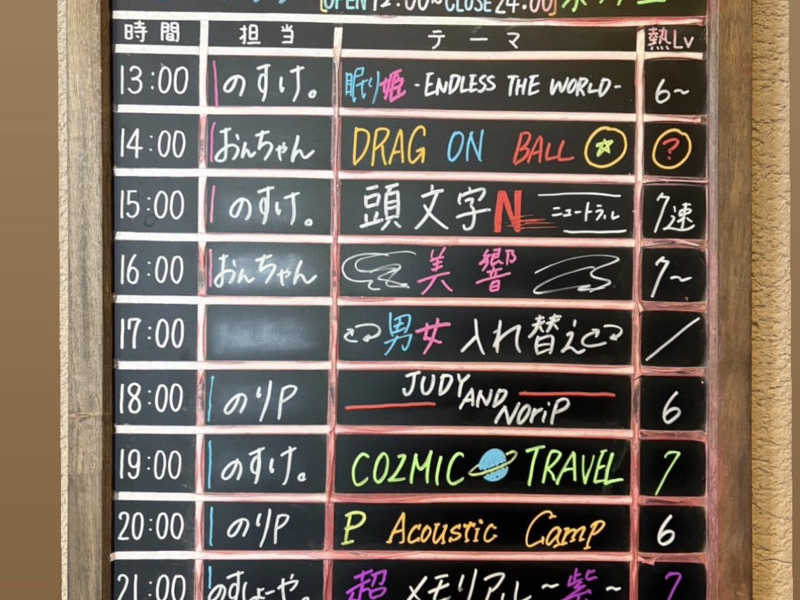 [OPEN 12:00~CLOSE 24:00]
時間 担当 テーマ 熱Lv
13:00 のすけ。 眠り姫 -ENDLESS THE WORLD- 6~
14:00 おんちゃん DRAG ON BALL ☆ ?
15:00 のすけ。 頭文字N ニュートラル 7速
16:00 おんちゃん 美響 7~
17:00 男女入れ替え /
18:00 のりP JUDY AND NoriP 6
19:00 のすけ。 COZMIC TRAVEL 7
20:00 のりP P Acoustic Camp 6
21:00 のすしょーや。 超メモリアル~紫~ 7